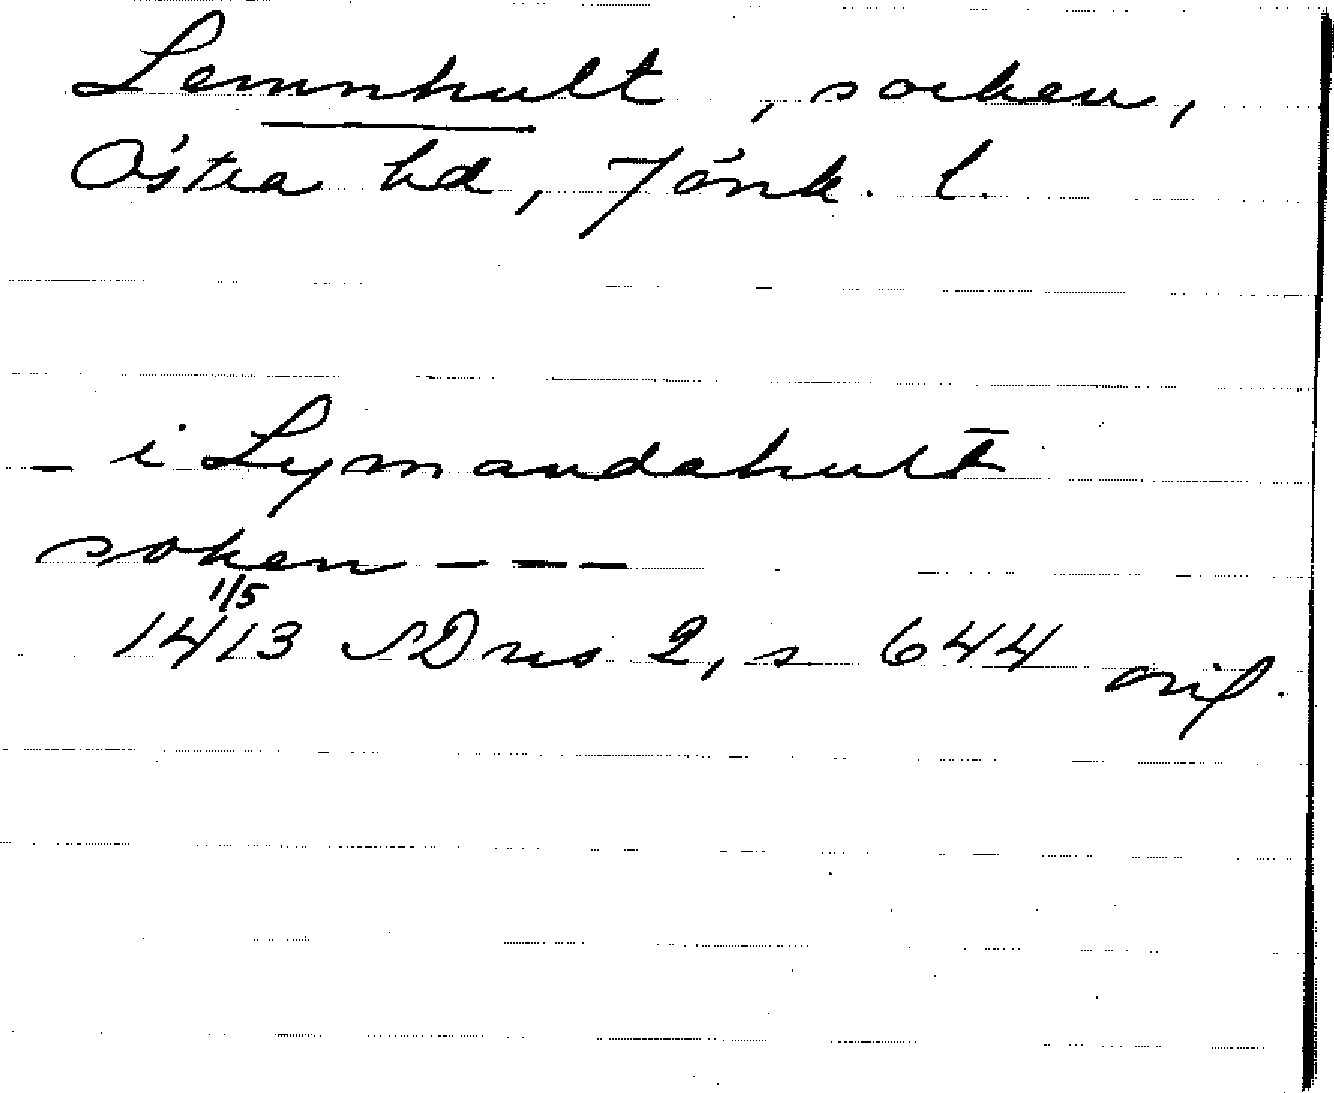 Lemnhult, socken,
Östra hd, Jönk. l.
- i Lymandahult
soken - - -
1/5
1413 SDns 2, s 644 orig.